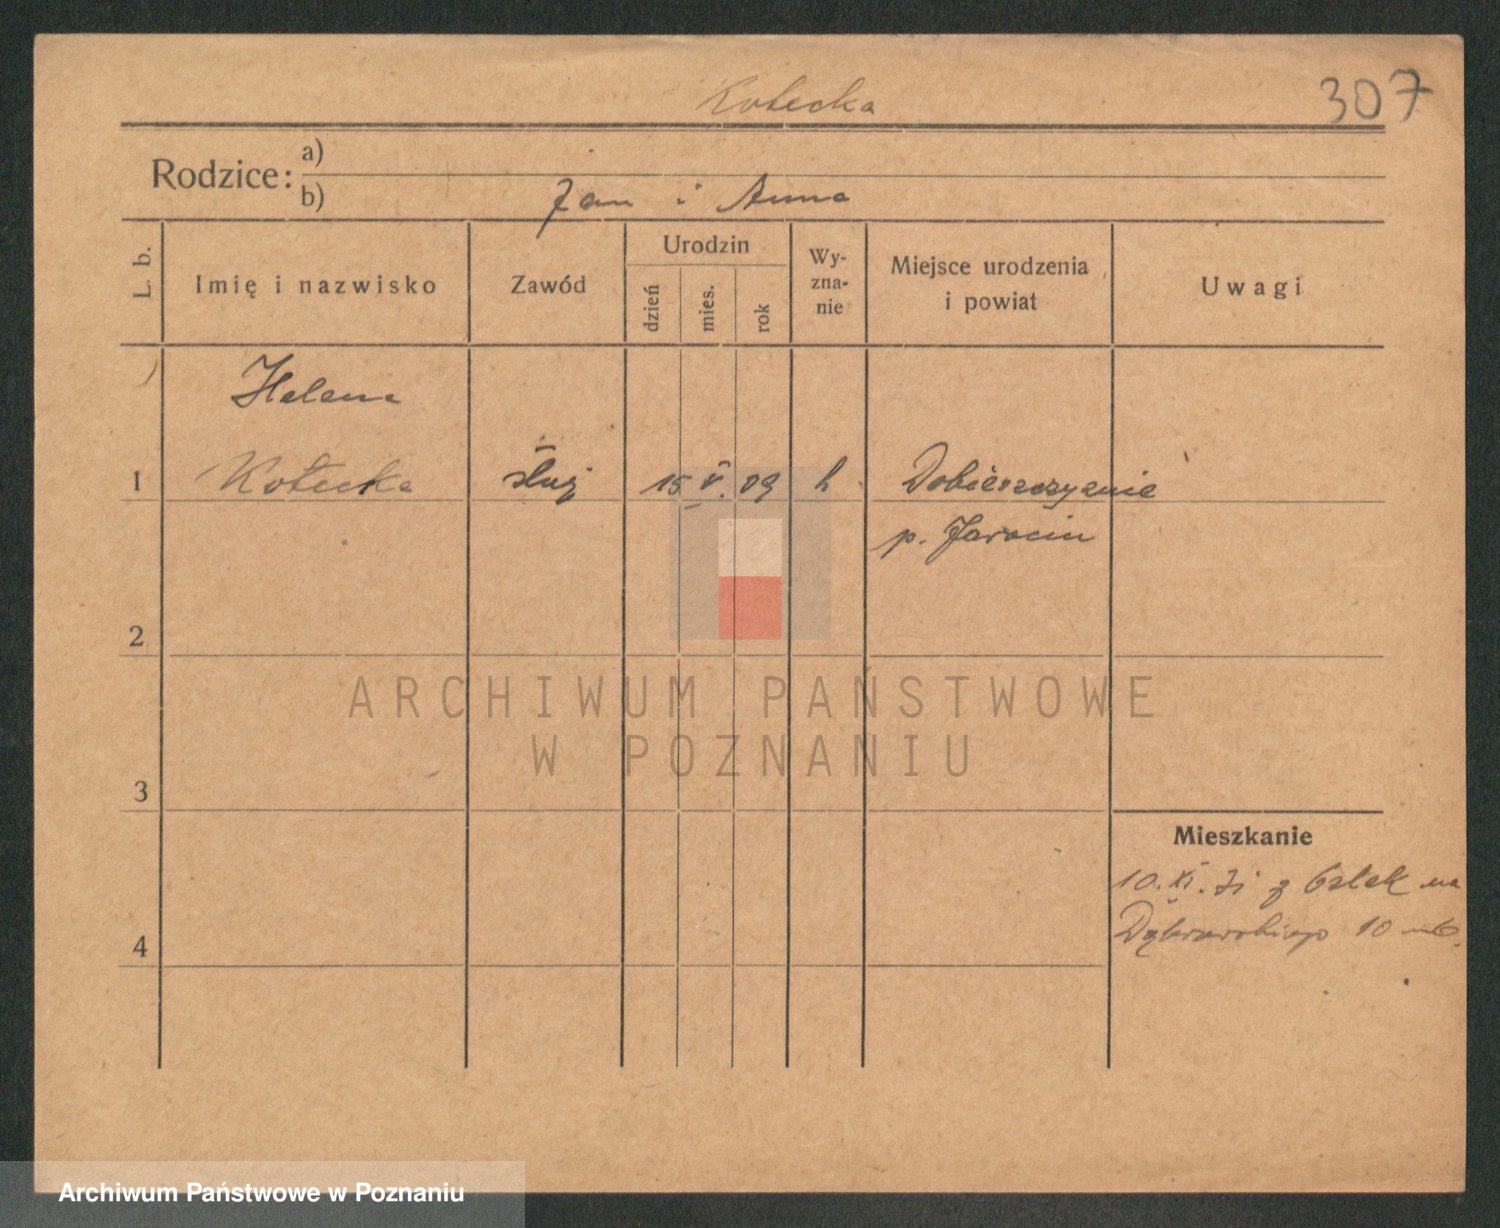 Kotecka
307
Rodzice:
a)
b) Jan i Anna
L. b.
Imię i nazwisko
Zawód
Urodzin
dzień
mies.
rok
Wy-
zna-
nie
Miejsce urodzenia
i powiat
Uwagi
Helena
1 Kotecka służ 15 V. 09 k Dobieszczyznie
p. Jarocin
2
ARCHIWUM PAŃSTWOWE
W POZNANIU
3
Mieszkanie
10. XI. 31 z na
4 Dąbrowskiego 10
Archiwum Państwowe w Poznaniu